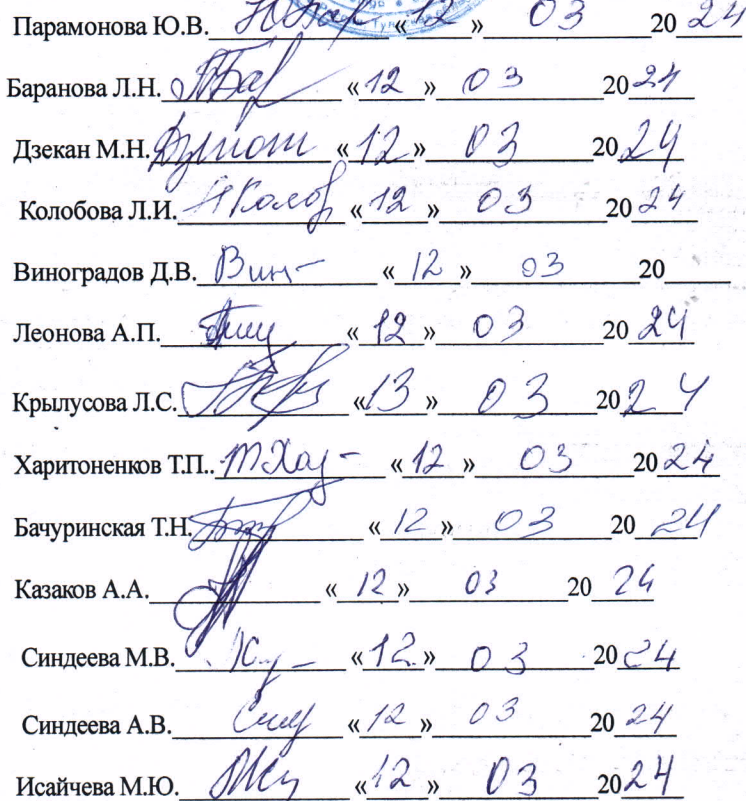 Парамонова Ю.В. «12» 03 2024
Баранова Л.Н. «12» 03 2024
Дзекан М.Н. «12» 03 2024
Колобова Л.И. «12» 03 2024
Виноградов Д.В. «12» 03 20
Леонова А.П. «12» 03 2024
Крылусова Л.С. «13» 03 2024
Харитоненков Т.П.. «12» 03 2024
Бачуринская Т.Н. «12» 03 2024
Казаков А.А. «12» 03 2024
Синдеева М.В. «12» 03 2024
Синдеева А.В. «12» 03 2024
Исайчева М.Ю. «12» 03 2024